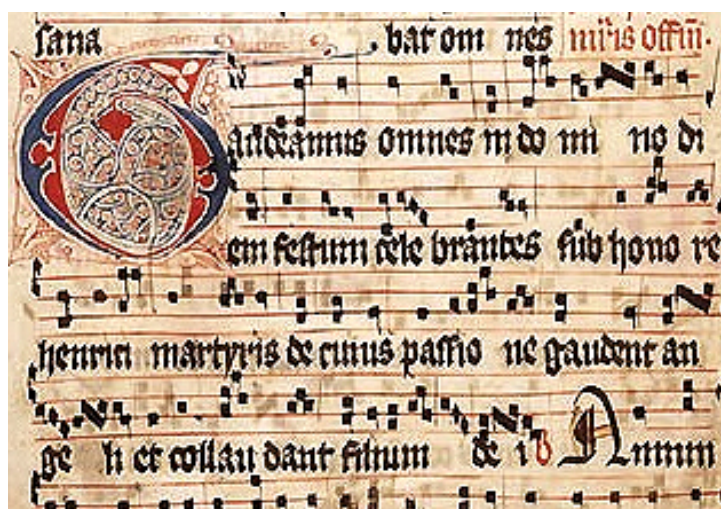 sana bat om nes
Gaudeamus omnes in do mi no di
em festum cele brantes sub hono re
henrici martyris de cuius passio ne gaudent an
ge li et collau dant filium de i Annun